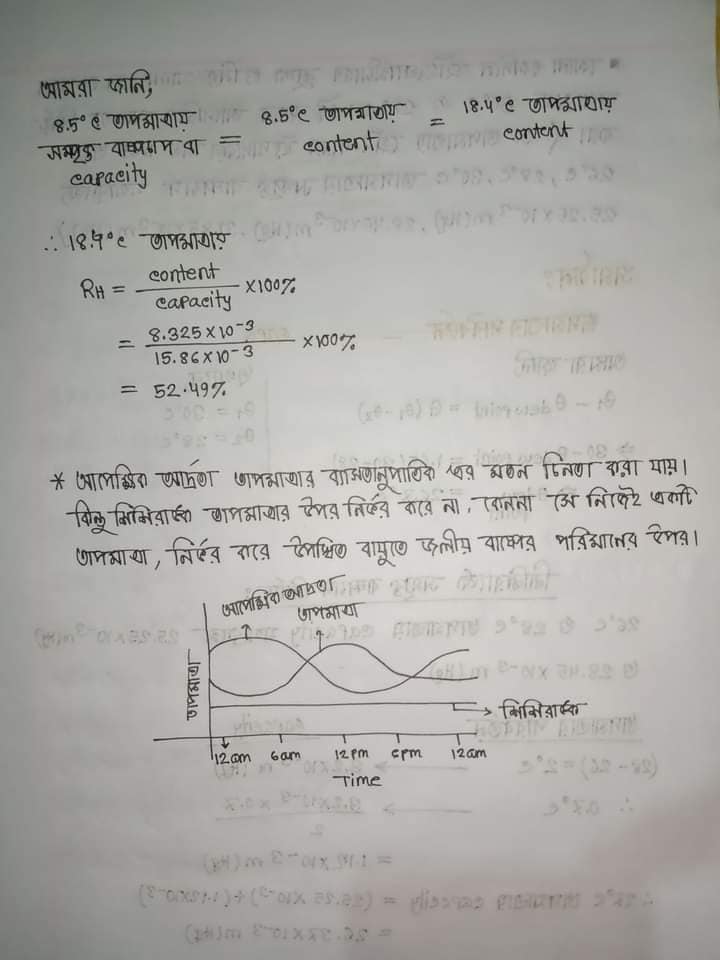 আমরা জানি,
8.5°C তাপমাত্রায় সম্পৃক্ত বাষ্পচাপ বা capacity = 8.5°C তাপমাত্রায় content = 18.4°C তাপমাত্রায় content
∴ 18.4°C তাপমাত্রায়
RH = content / capacity ×100%
= 8.325×10⁻³ / 15.86×10⁻³ ×100%
= 52.49%
* আপেক্ষিক আর্দ্রতা তাপমাত্রার ব্যাস্তানুপাতিক এর মতন চিন্তা করা যায়।
কিন্তু শিশিরাঙ্ক তাপমাত্রার উপর নির্ভর করে না, কেননা সে নিজেই একটা
তাপমাত্রা, নির্ভর করে উপস্থিত বায়ুতে জলীয় বাষ্পের পরিমানের উপর।
আপেক্ষিক আর্দ্রতা
তাপমাত্রা
তাপমাত্রা
শিশিরাঙ্ক
12am 6am 12pm 6pm 12am
Time